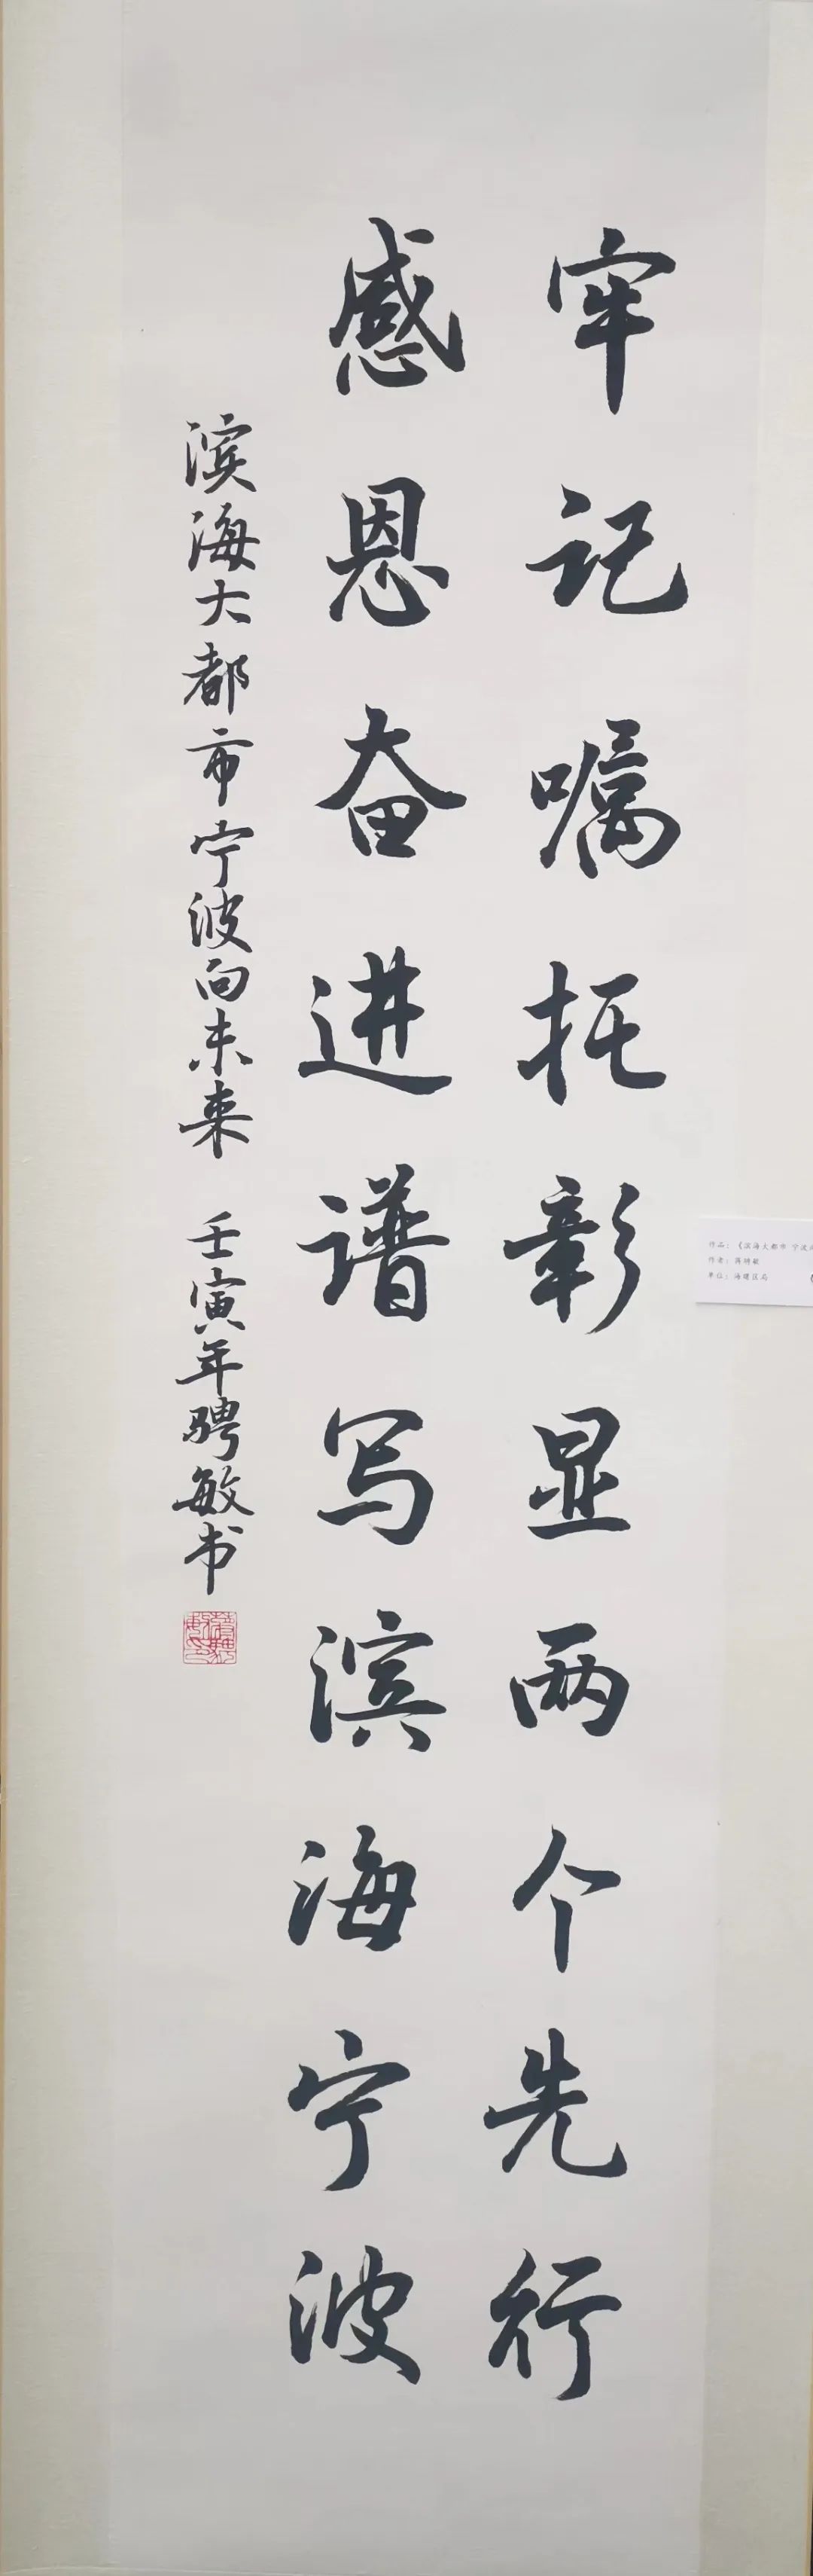 牢记嘱托彰显两个先行
感恩奋进谱写滨海宁波
滨海大都市宁波向未来 壬寅年骋敏书
作品：《滨海大都市 宁波
作者：蒋骋敏
单位：海曙区局